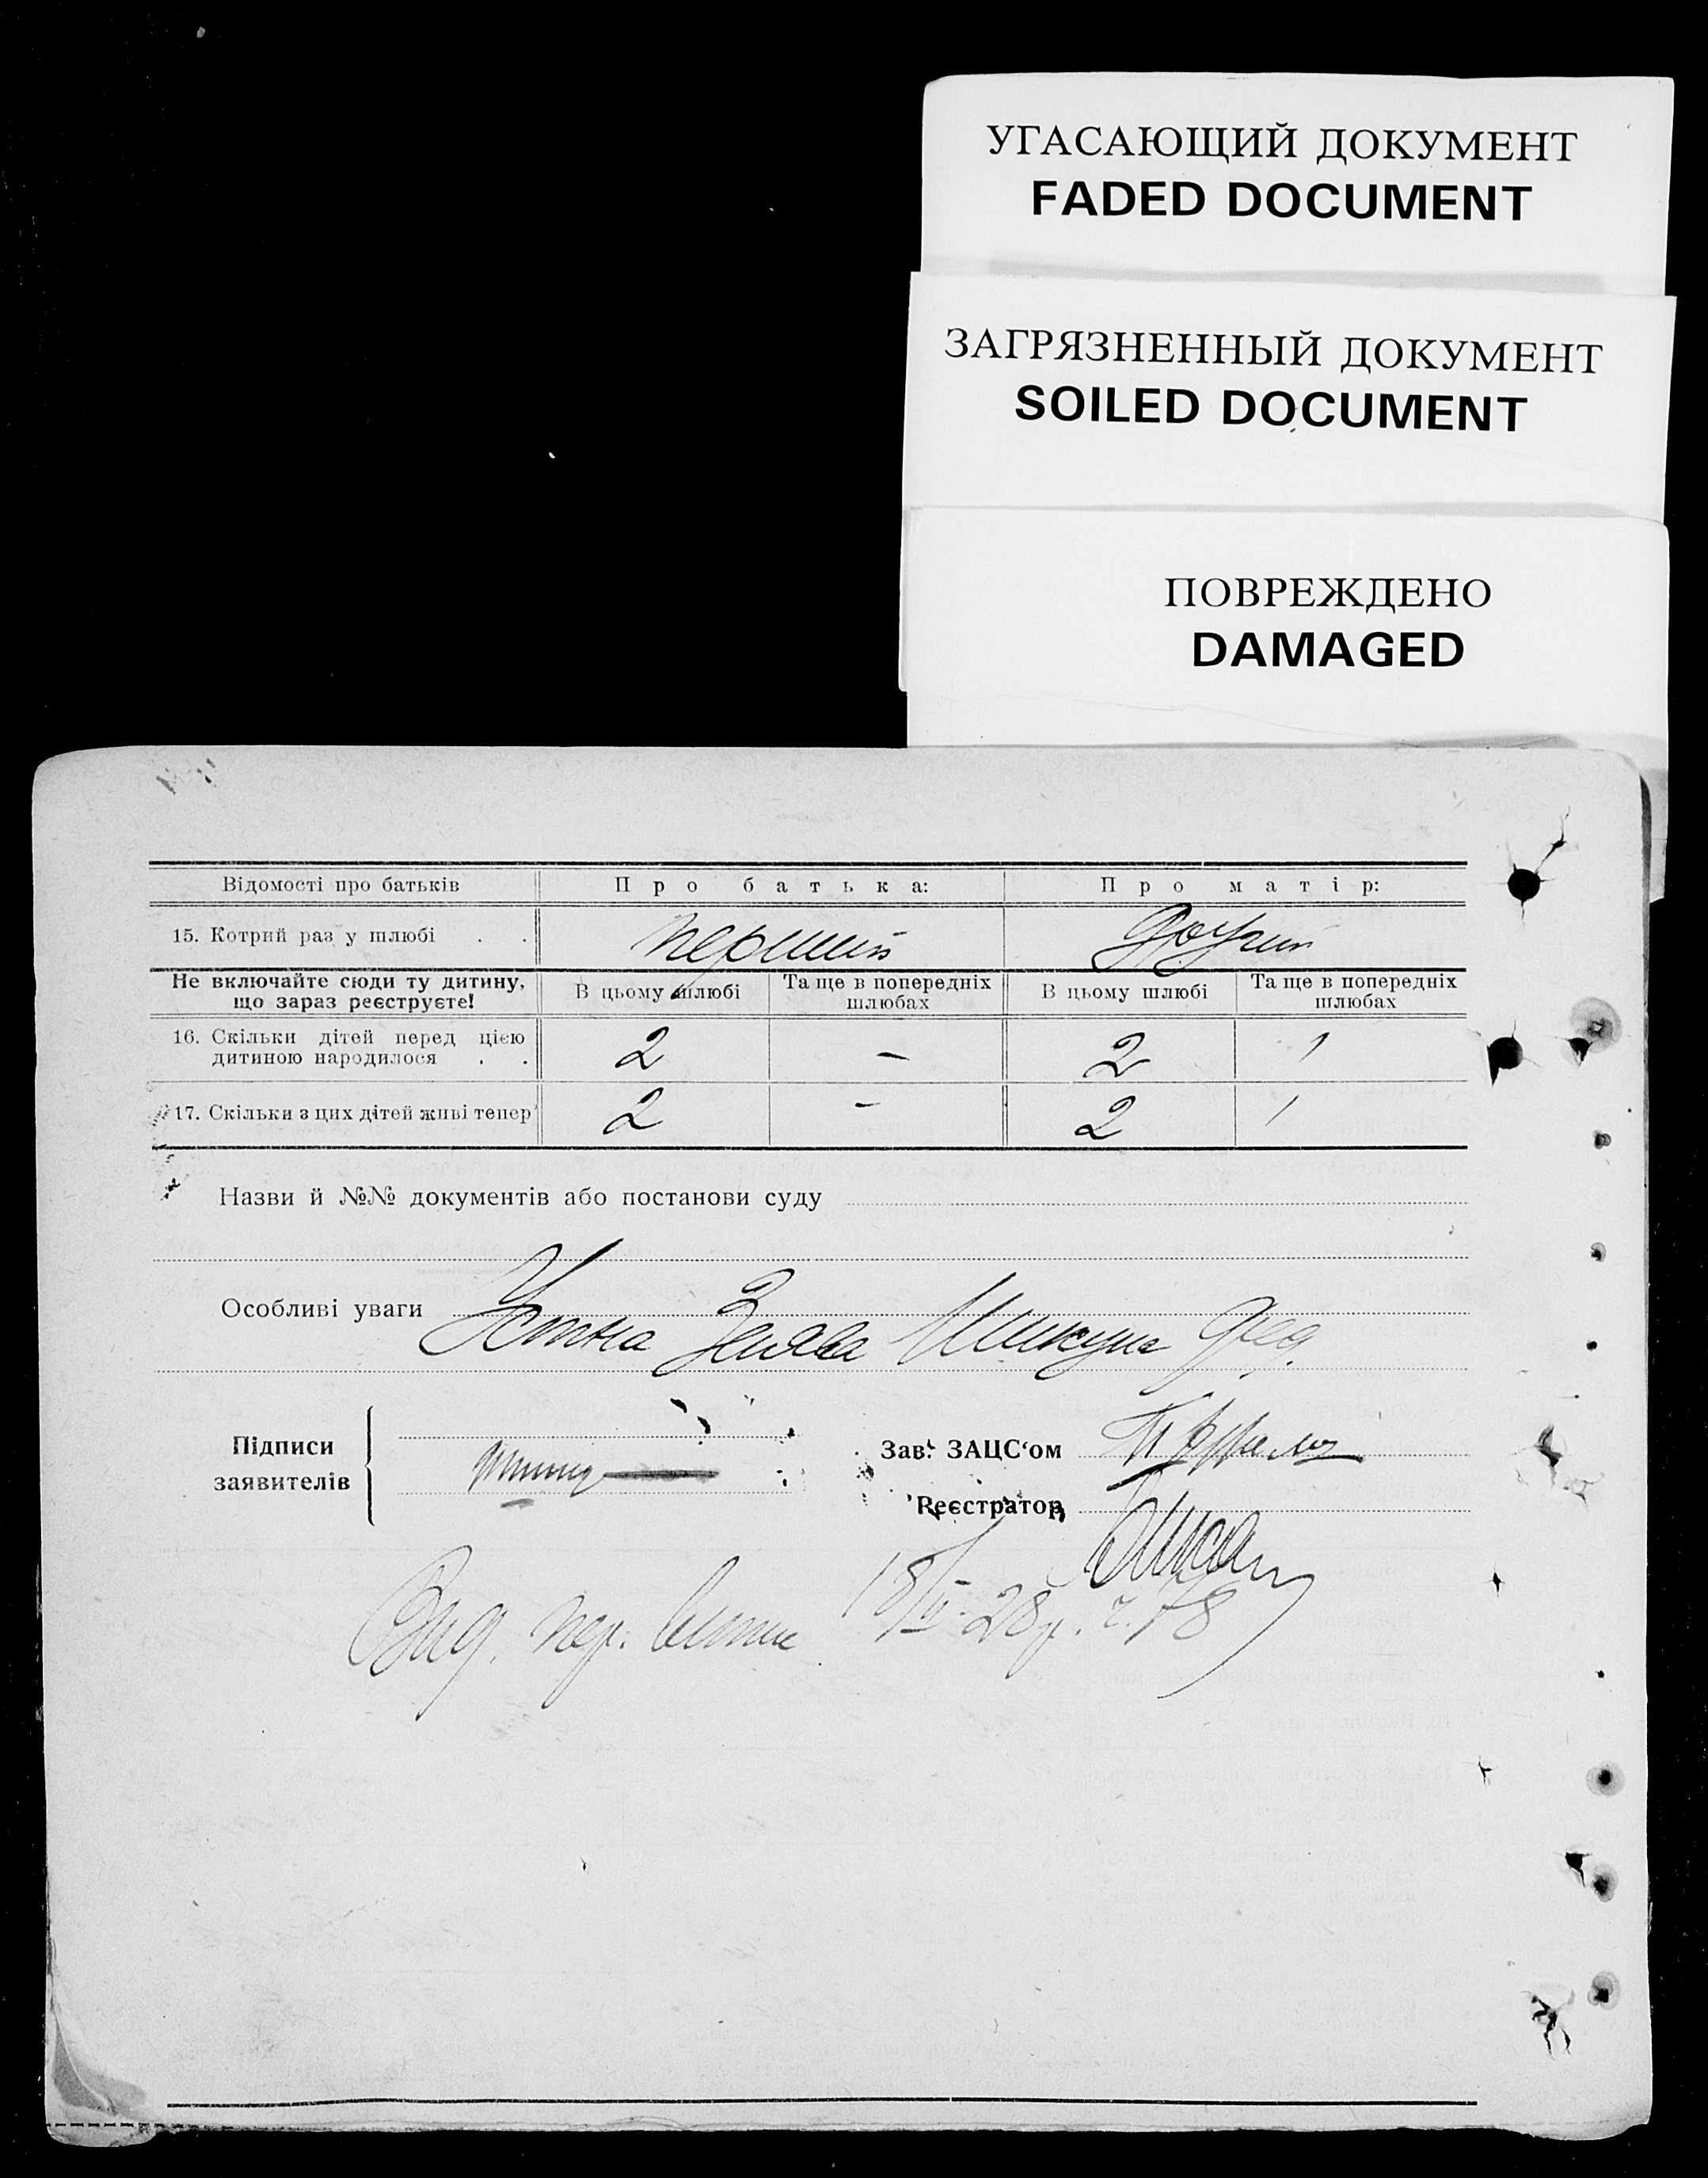 УГАСАЮЩИЙ ДОКУМЕНТ
FADED DOCUMENT
ЗАГРЯЗНЕННЫЙ ДОКУМЕНТ
SOILED DOCUMENT
ПОВРЕЖДЕНО
DAMAGED
Відомості про батьків Про батька: Про матір:
15. Котрий раз у шлюбі . . перший другий
Не включайте сюди ту дитину, що зараз реєструєте! В цьому шлюбі Та ще в попередніх шлюбах В цьому шлюбі Та ще в попередніх шлюбах
16. Скільки дітей перед цією
дитиною народилося . . 2 – 2 1
17. Скільки з цих дітей живі тепер 2 – 2 1
Назви й №№ документів або постанови суду
Особливі уваги Устна Заява
Підписи
заявителів
Зав. ЗАЦС'ом
Реєстратор
Вид. пер. витяг 18/V-28р. ч. 178